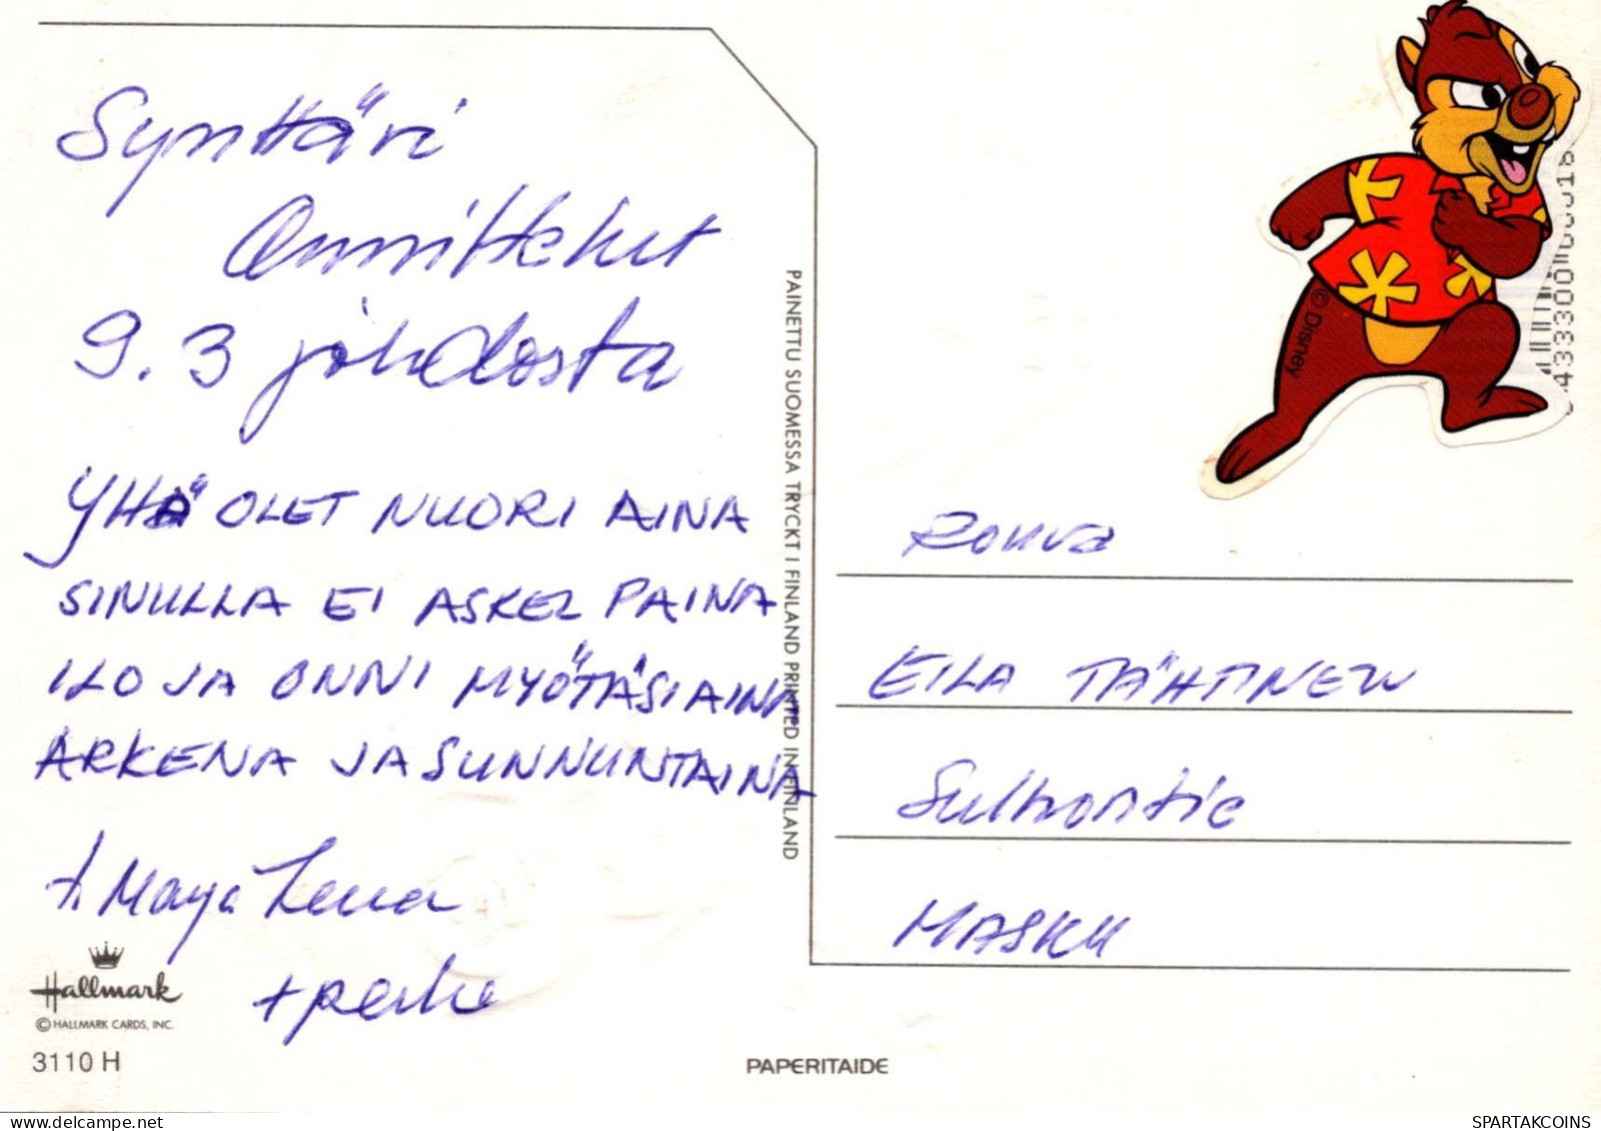 Synttäri
Onnittelut
9.3 johdosta
YHÄ OLET NUORI AINA
SINULLA EI ASKEL PAINA
ILO JA ONNI MYÖTÄSI AINA
ARKENA JA SUNNUNTAINA
T. Maya Leena
+ perhe
Hallmark
© HALLMARK CARDS, INC.
3110 H
PAINETTU SUOMESSA TRYCKT I FINLAND PRINTED IN FINLAND
PAPERITAIDE
© Disney
Rouva
EILA TÄHTINEN
Sulhontie
MASKU
SPARTAKCOINS